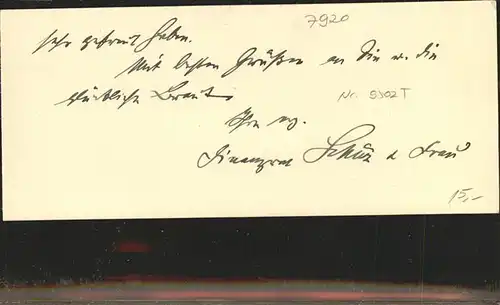 7920
sehr gefreut haben.
Mit besten Grüßen an Sie u. die
glückliche Braut
Nr. 5302T
Ihr
Finanzrat Schütz u Frau
15,-